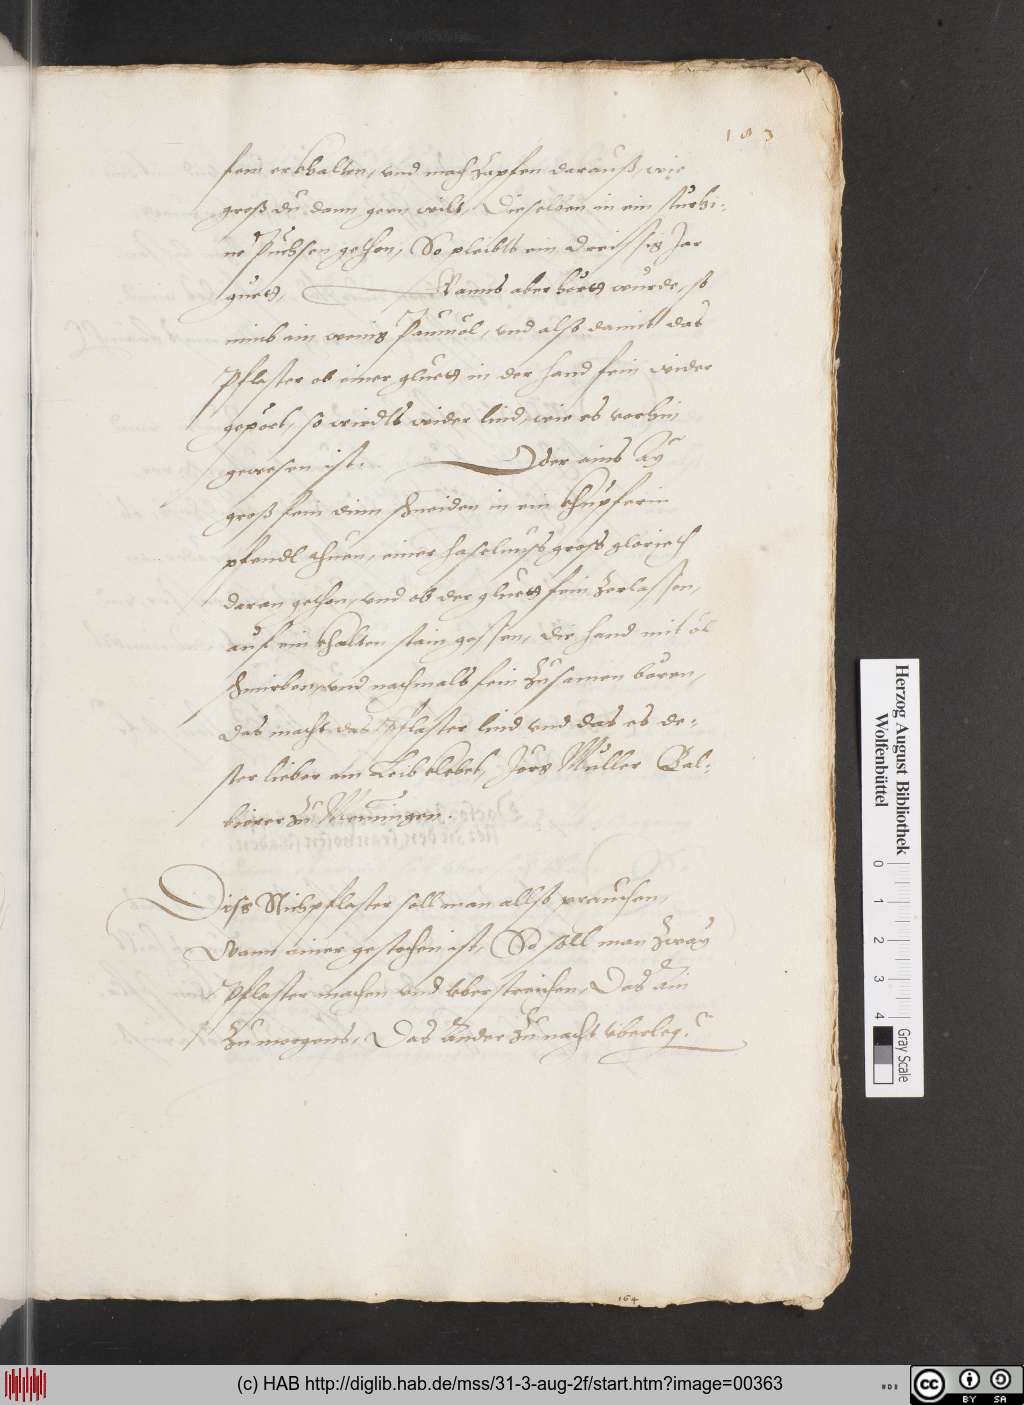 183
fein erkhalten, und mach Zapfen darauß, wie
groß du dann gern wilt, Dieselben in ein
ne Püchsen gethon, So pleibts ein Dreissig Jar
guet, Wanns aber hört wurde, so
nimb ain wenig Paumöl, und also damit das
Pflaster ob einer gluet in der hand fein wider
gepört, so wirdts wider lind, wie es vorhin
gewesen ist. Oder eins Ay
groß fein dinn schneiden in ein khupferin
pfendl thuen, einer haselnuss gross gloriet
daran gethon, und ob der gluet fein zerlassen,
auf ein khalten stain gessen, die hand mit öl
schmirben, und nachmals fein zusamen bören,
das macht das Pflaster lind und das es de-
ster lieber am Leib klebet, Jörg Müller Bal-
bierer zu
Diss Stichpflaster soll man allso prauchen,
Wann einer gestochen ist, So soll man zway
Pflaster machen und überstreichen, Das ain
zu morgens, Das Ander zu nacht überleg.
164
Herzog August Bibliothek
Wolfenbüttel
0
1
2
3
4
Gray Scale
(c) HAB http://diglib.hab.de/mss/31-3-aug-2f/start.htm?image=00363
cc
BY SA